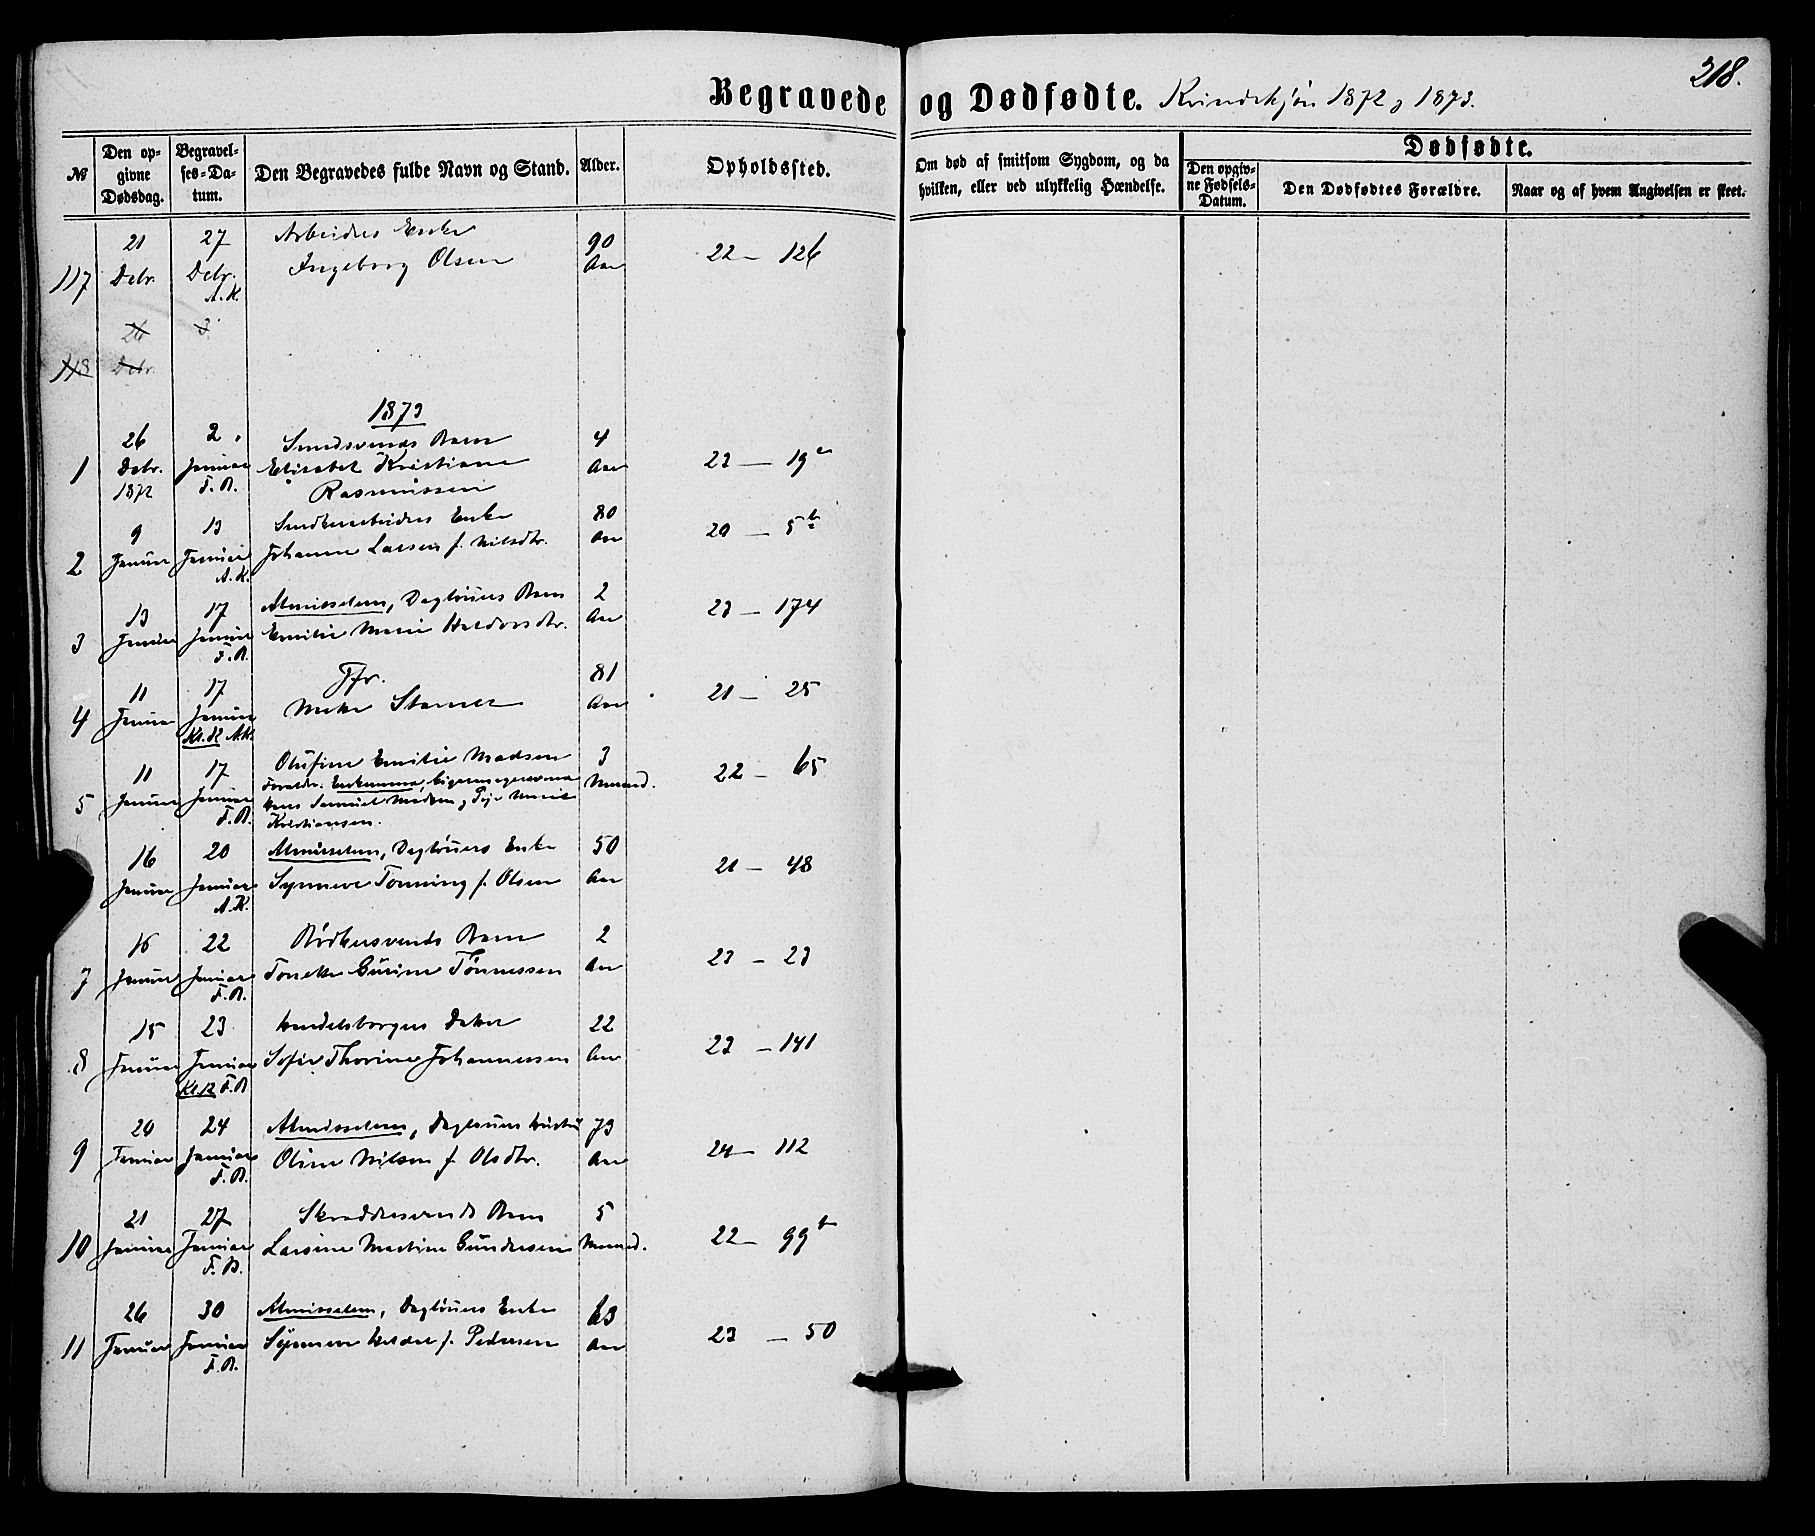 Begravede og Dødfødte. Kvindekjøn 1872 og 1873.
218.
№
Den opgivne Dødsdag.
Begravelses-Datum.
Den Begravedes fulde Navn og Stand.
Alder.
Opholdssted.
Om død af smitsom Sygdom, og da hvilken, eller ved ulykkelig Hændelse.
Dødfødte.
Den opgivne Fødsels-Datum.
Den Dødfødtes Forældre.
Naar og af hvem Angivelsen er skeet.
21 27 Arbeiders Enke 90
117 Debr. Debr. Ingeborg Olsen Aar 22 – 126
A.K.
26 3
118 Debr.
1873
26 2 Smedsvends Barn 4
1 Debr. Januar Elisabet Kristiane Aar 23 – 19a
1872 F.B. Rasmussen
9 13 Enke 80
2 Januar Januar Johanne Larsen f. Nilsdtr. Aar 20 – 5b
A.K.
13 17 Almisselem, Dagløners Barn 2
3 Januar Januar Emilie Marie Haldorsdtr. Aar 23 – 174
F.B.
11 17 Jfr. 81
4 Januar Januar Aar 21 – 25
Kl. 12 A.K.
11 17 Olufine Emilie Madsen 3
5 Januar Januar Foreldr. Maaned. 22 – 65
F.B. Hans Samuel Madsen og Marie
Kristiansen.
16 20 Almisselem, Dagløners Enke 50
Januar Januar Synneve Tonning f. Olsen Aar 21 – 48
A.K.
16 22 Bødkersvends Barn 2
7 Januar Januar Tonette Gurine Tønnessen Aar 23 – 23
F.B.
15 23 Handelsborgers Datter 22
8 Januar Januar Sofie Thorine Johannessen Aar 23 – 141
Kl. 12 F.B.
20 24 Almisselem, Dagløners Hustru 73
9 Januar Januar Oline Nilsen f. Olsdtr. Aar 24 – 112
F.B.
21 27 Skraddersvends Barn 5
10 Januar Januar Larsine Martine Gundersen Maaned. 22 – 99b
F.B.
26 30 Almisselem, Dagløners Enke 63
11 Januar Januar Synneve f. Pedersen Aar 23 – 50
F.B.